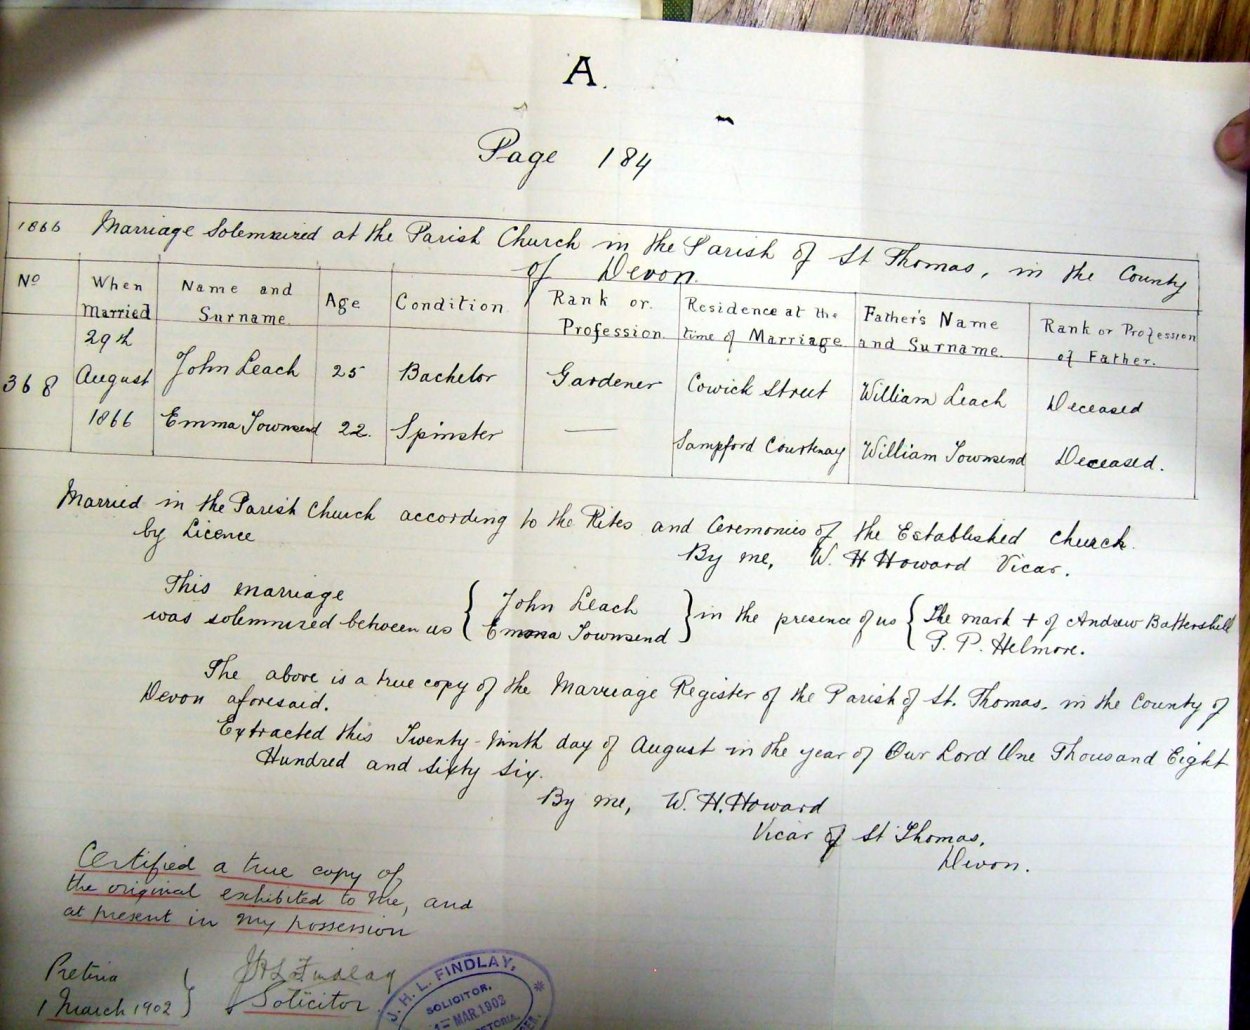 A.
Page 184
1866 Marriage Solemnized at the Parish Church in the Parish of St Thomas, in the County
of Devon.
No When Married Name and Surname Age Condition Rank or Profession Residence at the time of Marriage Father's Name and Surname Rank or Profession of Father.
368 29th August 1866
John Leach 25 Bachelor Gardener Cowick Street William Leach Deceased
Emma Townsend 22. Spinster — Sampford Courtenay William Townsend Deceased.
Married in the Parish Church according to the Rites and Ceremonies of the Established church
by Licence
By me, W. H Howard Vicar.
This marriage
was solemnized between us { John Leach
Emma Townsend } in the presence of us { The mark + of Andrew Battershill
P. P. Helmore.
The above is a true copy of the Marriage Register of the Parish of St. Thomas, in the County of
Devon aforesaid.
Extracted this Twenty-ninth day of August in the year of Our Lord One Thousand Eight
Hundred and Sixty Six.
By me, W. H. Howard
Vicar of St Thomas,
Devon.
Certified a true copy of
the original exhibited to me, and
at present in my possession
Pretoria
1 March 1902 }
J H L Findlay
Solicitor
J. H. L. FINDLAY,
SOLICITOR,
1 - MAR. 1902
PRETORIA